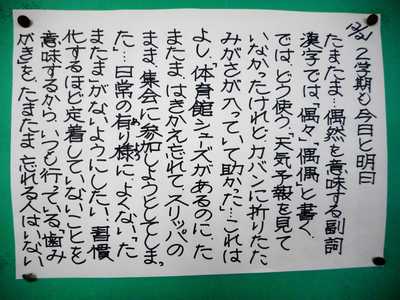 12/21 2学期も今日と明日
たまたま…偶然を意味する副詞
漢字では、「偶々」「偶偶」と書く。
では、どう使う。「天気予報を見て
いなかったけれどカバンに折りたた
みがさが入っていて助かった」…これは
よし。「体育館シューズがあるのに、た
またま、はきかえ忘れて、スリッパの
まま、集会に参加しようとしてしまっ
た」…日常の有り様に、よくない「た
またま」がないようにしたい。習慣
化するほど定着していないことを
意味するから。いつも行っている「歯み
がき」を、たまたま、忘れる人はいない